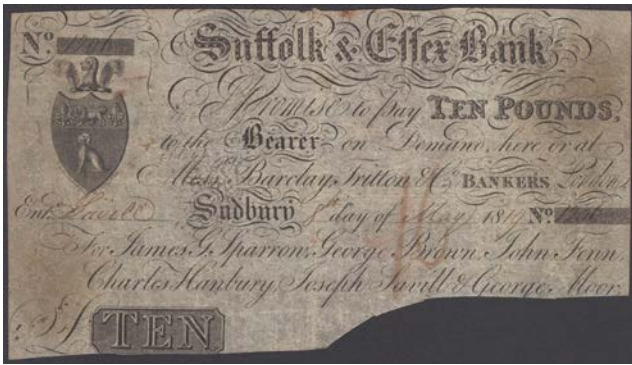 No. 1706 Suffolk & Essex Bank
I Promise to pay TEN POUNDS,
to the Bearer on Demand, here or at
Messrs. Barclay, Tritton & Co. BANKERS London.
Entd. Savill Sudbury 8th day of May 1819 No. 1706
For James G. Sparrow, George Brown, John Fenn,
Charles Hanbury, Joseph Savill & George Moor.
£ TEN